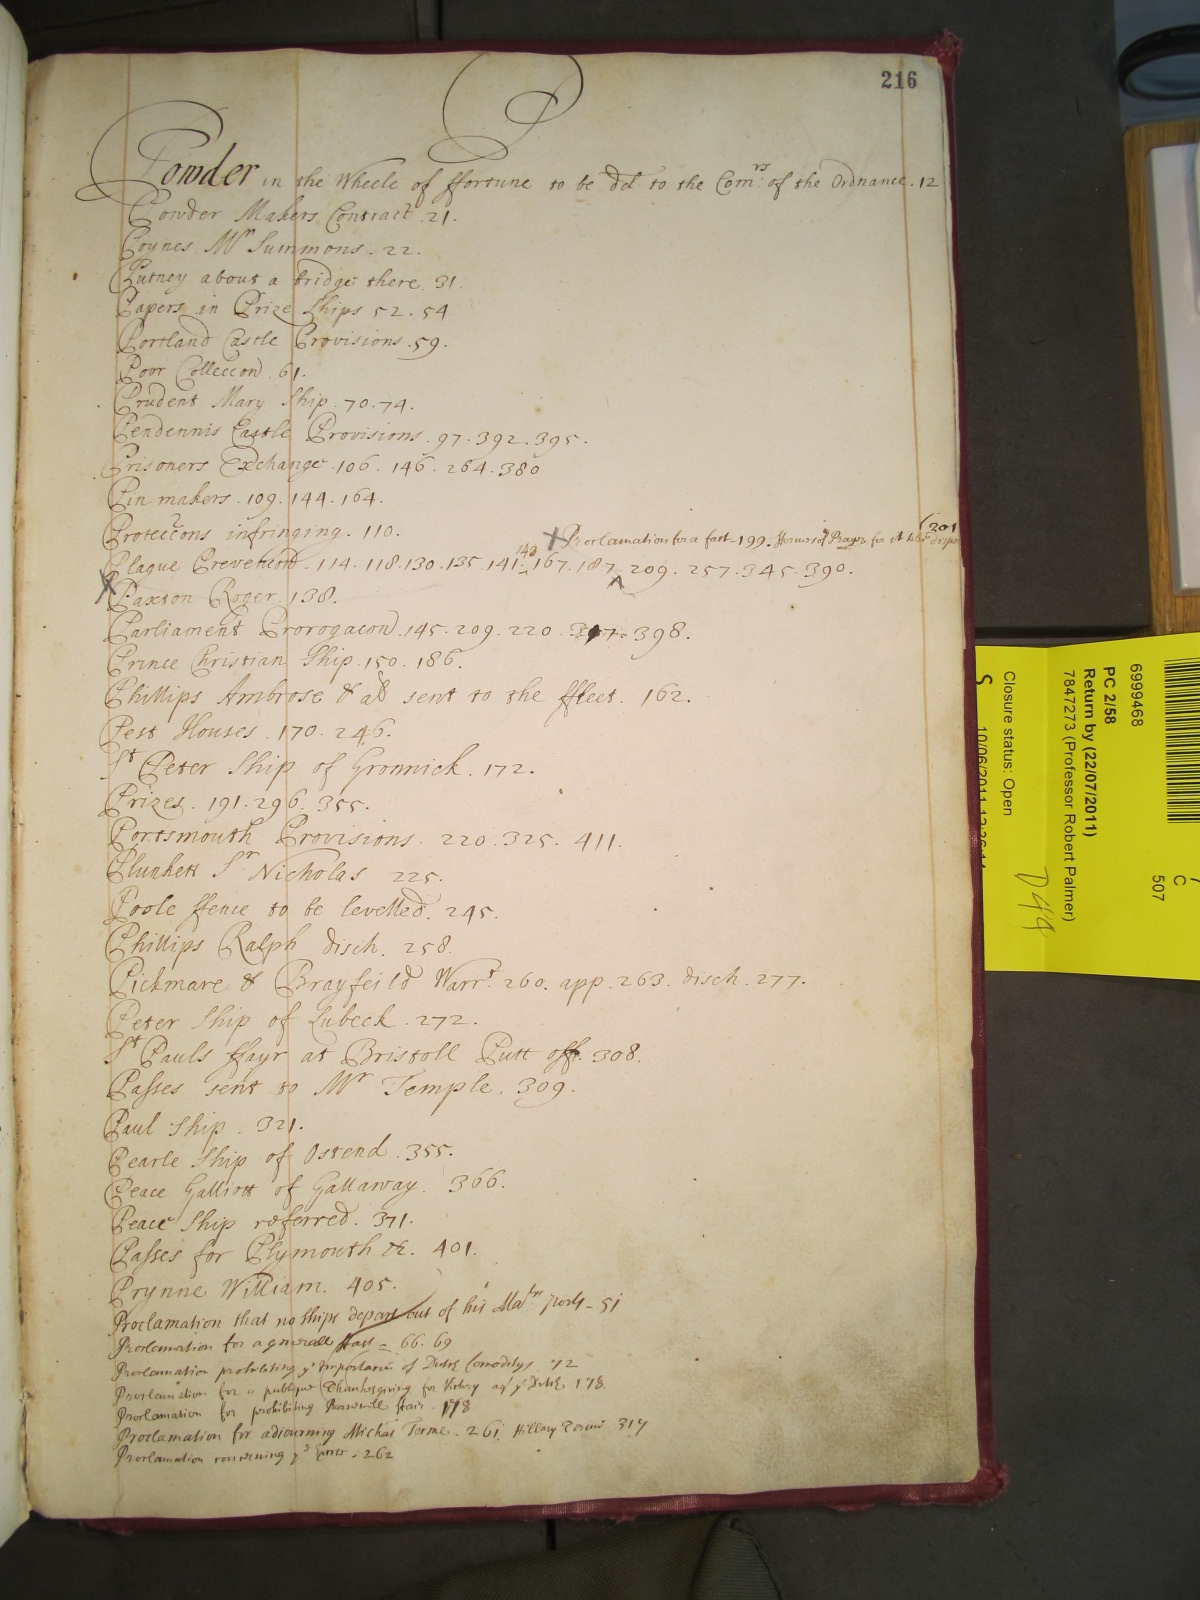 216
P
Powder in the Wheele of ffortune to be del to the Comrs of the Ordnance. 12
Powder Makers Contract. 21.
Poynes Mr Summons. 22.
Putney about a bridge there. 31.
Papers in Prize Ships 52. 54
Portland Castle Provisions. 59.
Poor Colleccon. 61.
Prudent Mary Ship. 70. 74.
Pendennis Castle Provisions. 97. 392. 395.
Prisoners Exchange. 106. 146. 264. 380
Pin makers. 109. 144. 164.
Proteccons infringing. 110.
X Proclamation for a fast - 199. fforme of Prayer for it
(201
Plague Prevencon. 114. 118. 130. 135. 141. 143 167. 187. 209. 257. 345. 390.
X Paxton Roger. 138.
Parliament Prorogacon. 145. 209. 220. 398.
Prince Christian Ship. 150. 186.
Phillips Ambrose & al sent to the ffleet. 162.
Pest Houses. 170. 246.
St Peter Ship of Gronnick. 172.
Prizes. 191. 296. 355.
Portsmouth Provisions. 220. 325. 411.
Plunkett Sr Nicholas 225.
Poole ffence to be levelled. 245.
Phillips Ralph disch. 258.
Pickmare & Brayfeild Warrt. 260. app. 263. disch. 277.
Peter Ship of Lubeck. 272.
St Pauls ffayr at Bristoll Putt off. 308.
Passes sent to Mr Temple. 309.
Paul Ship. 321.
Pearle Ship of Ostend. 355.
Peace Galliott of Gallaway. 366.
Peace Ship referred. 371.
Passes for Plymouth &c. 401.
Prynne William. 405.
Proclamation that no ships depart out of his Matys ports - 51
Proclamation for a generall ffast - 66. 69
Proclamation prohibiting ye Importacon of Dutch Comoditys 72
Proclamation for a publique Thanksgiving for Victory agt ye Dutch 178
Proclamation for prohibiting ffair. 178
Proclamation for adjourning Michās Terme. 261. Hillary Terme 317
Proclamation concerning ye - 262
6999468
PC 2/58
Return by (22/07/2011)
7847273 (Professor Robert Palmer)
Closure status: Open
S
10/06/2011
D49
C
507